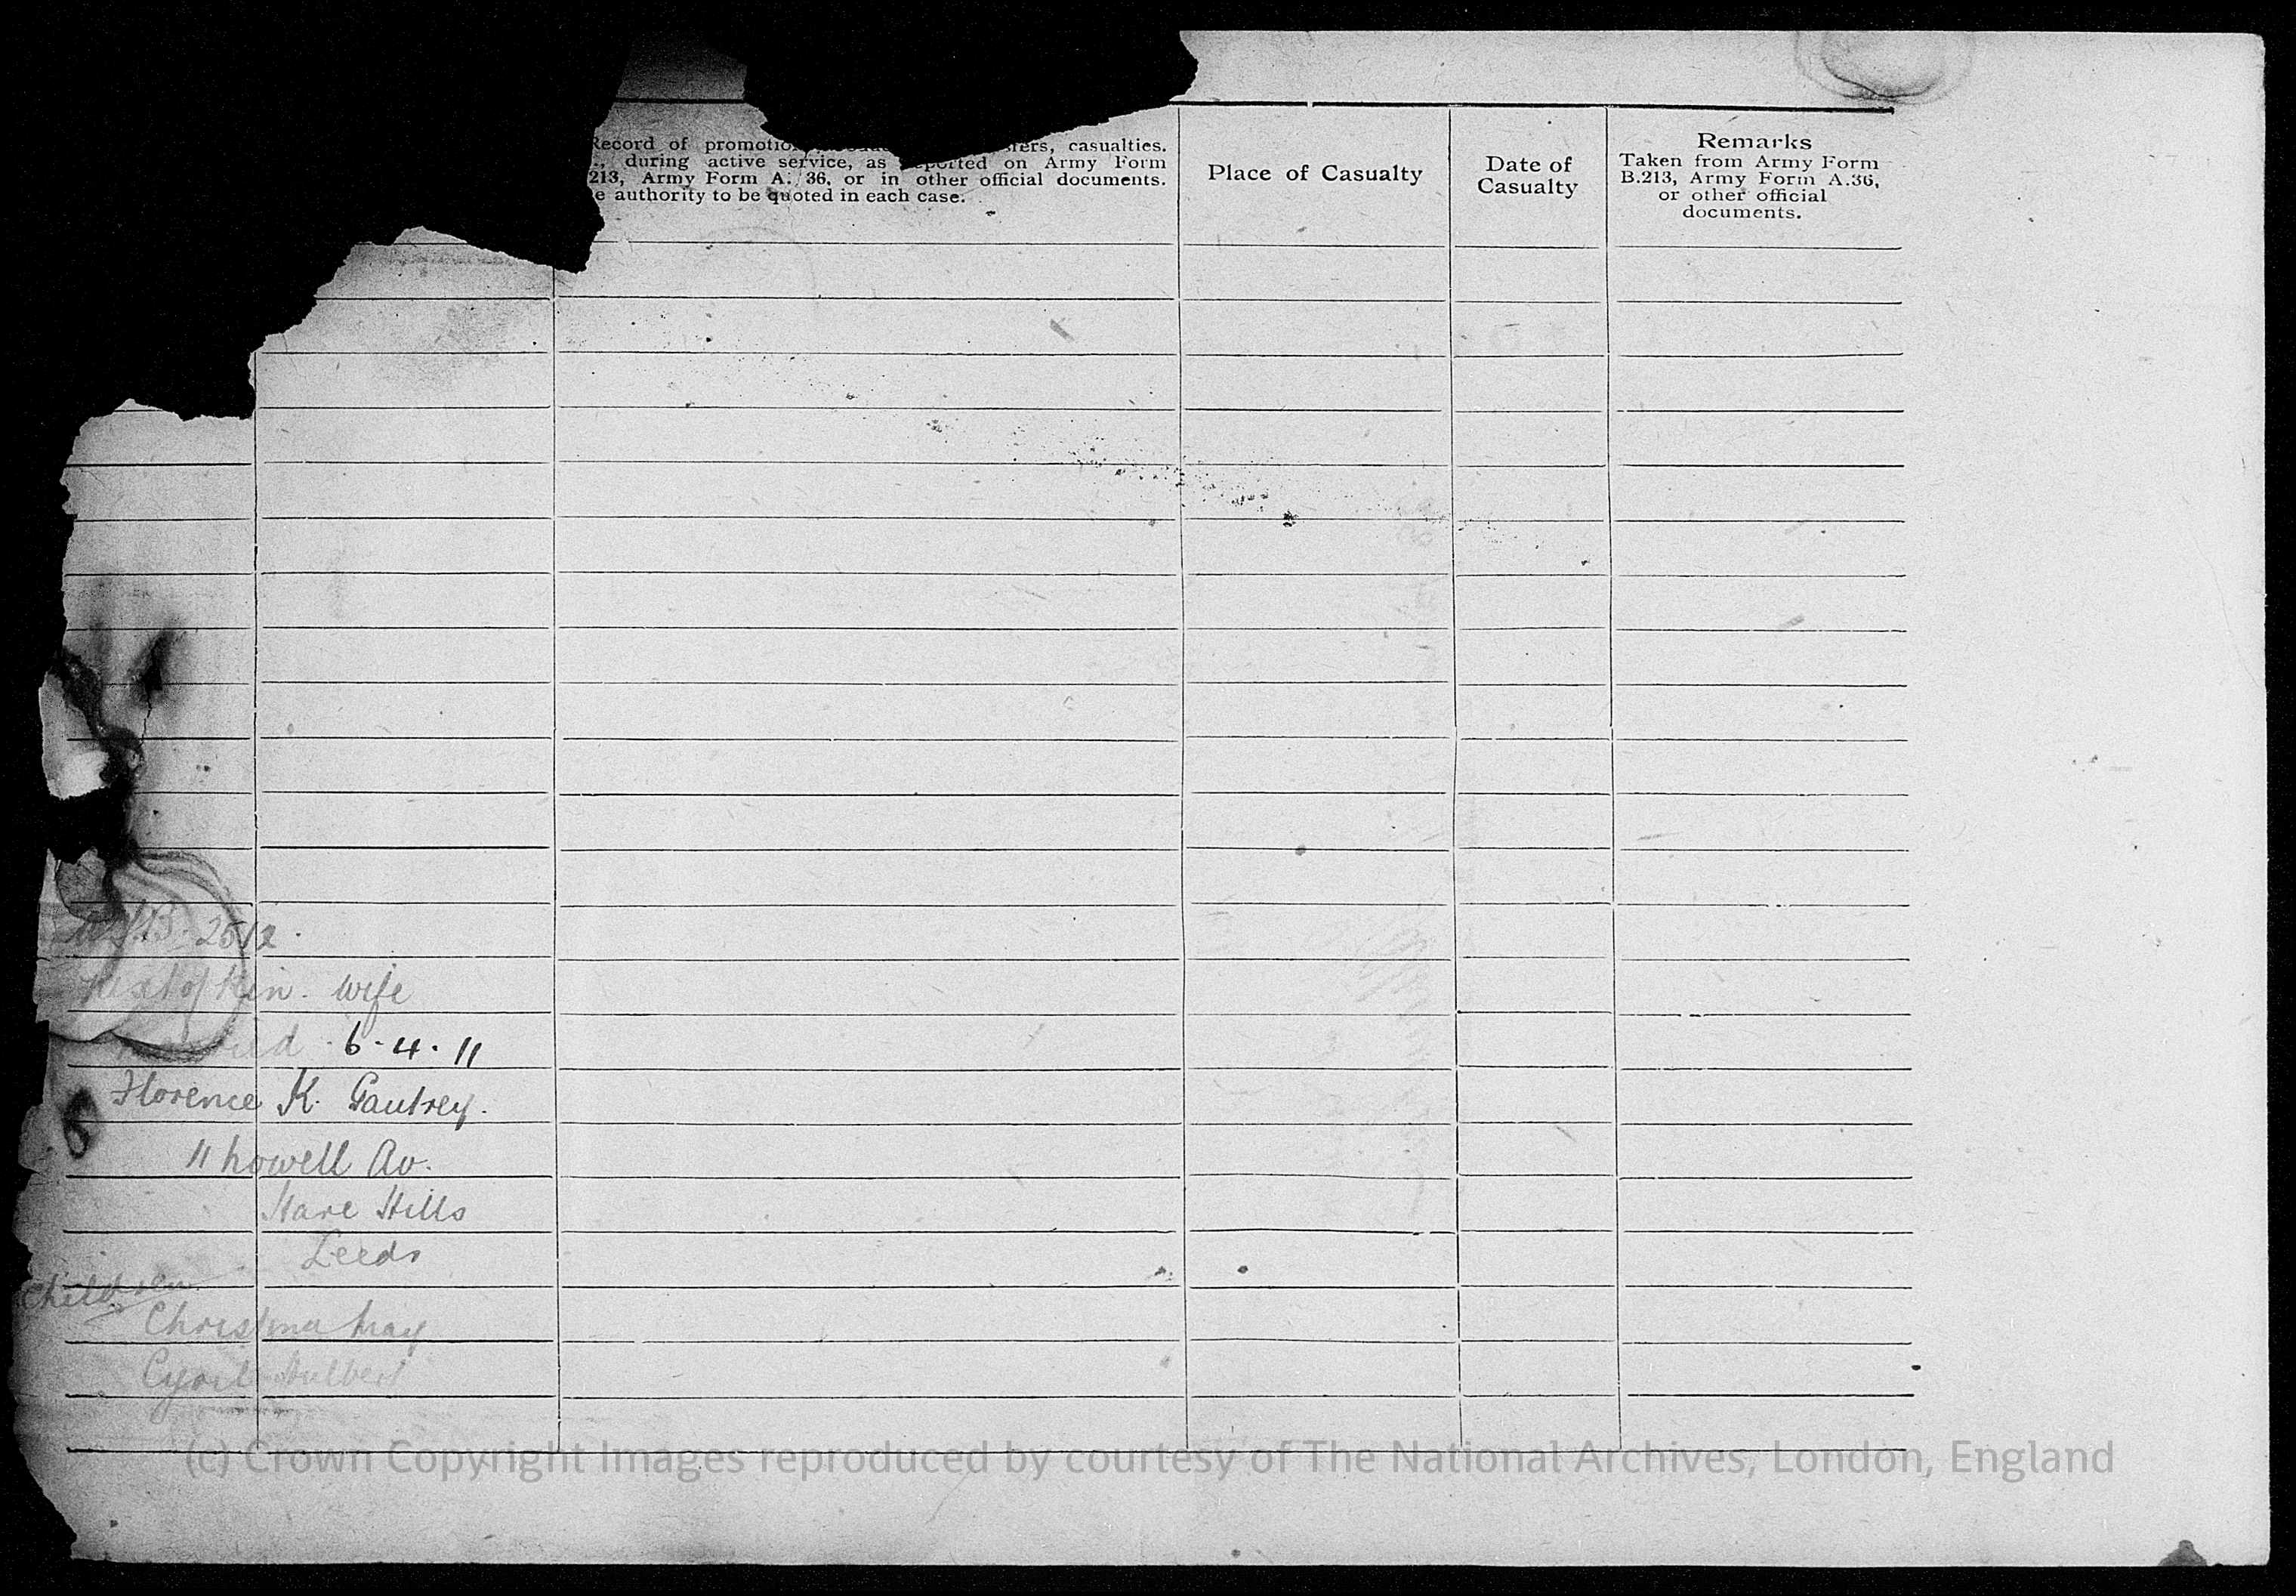 Record of promotio fers, casualties.
., during active service, as reported on Army Form
213, Army Form A. 36, or in other official documents.
e authority to be quoted in each case.
Place of Casualty
Date of
Casualty
Remarks
Taken from Army Form
B.213, Army Form A.36,
or other official
documents.
B. 2512.
Next of Kin. Wife
Married 6.4.11
Florence K. Gautrey.
11 Lowell Av.
Hare Hills
Leeds
Children
Christina May
Cyril
(c) Crown Copyright Images reproduced by courtesy of The National Archives, London, England